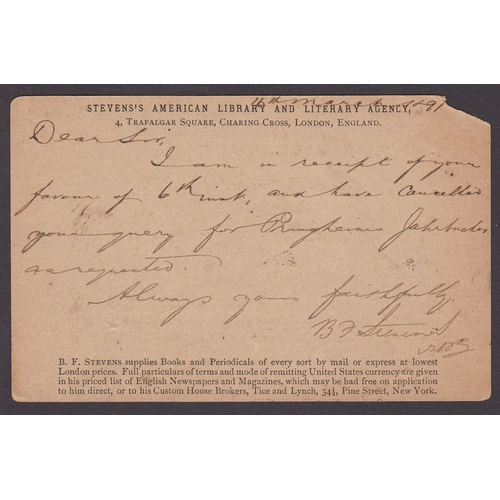 STEVENS'S AMERICAN LIBRARY AND LITERARY AGENCY,
4, TRAFALGAR SQUARE, CHARING CROSS, LONDON, ENGLAND.
March 1891
Dear Sir,
I am in receipt of your
favour of 6th inst, and have cancelled
your query for Pringsheims Jahrbucher
as requested.
Always yours faithfully,
B F Stevens
B. F. STEVENS supplies Books and Periodicals of every sort by mail or express at lowest
London prices. Full particulars of terms and mode of remitting United States currency are given
in his priced list of English Newspapers and Magazines, which may be had free on application
to him direct, or to his Custom House Brokers, Tice and Lynch, 34½, Pine Street, New York.